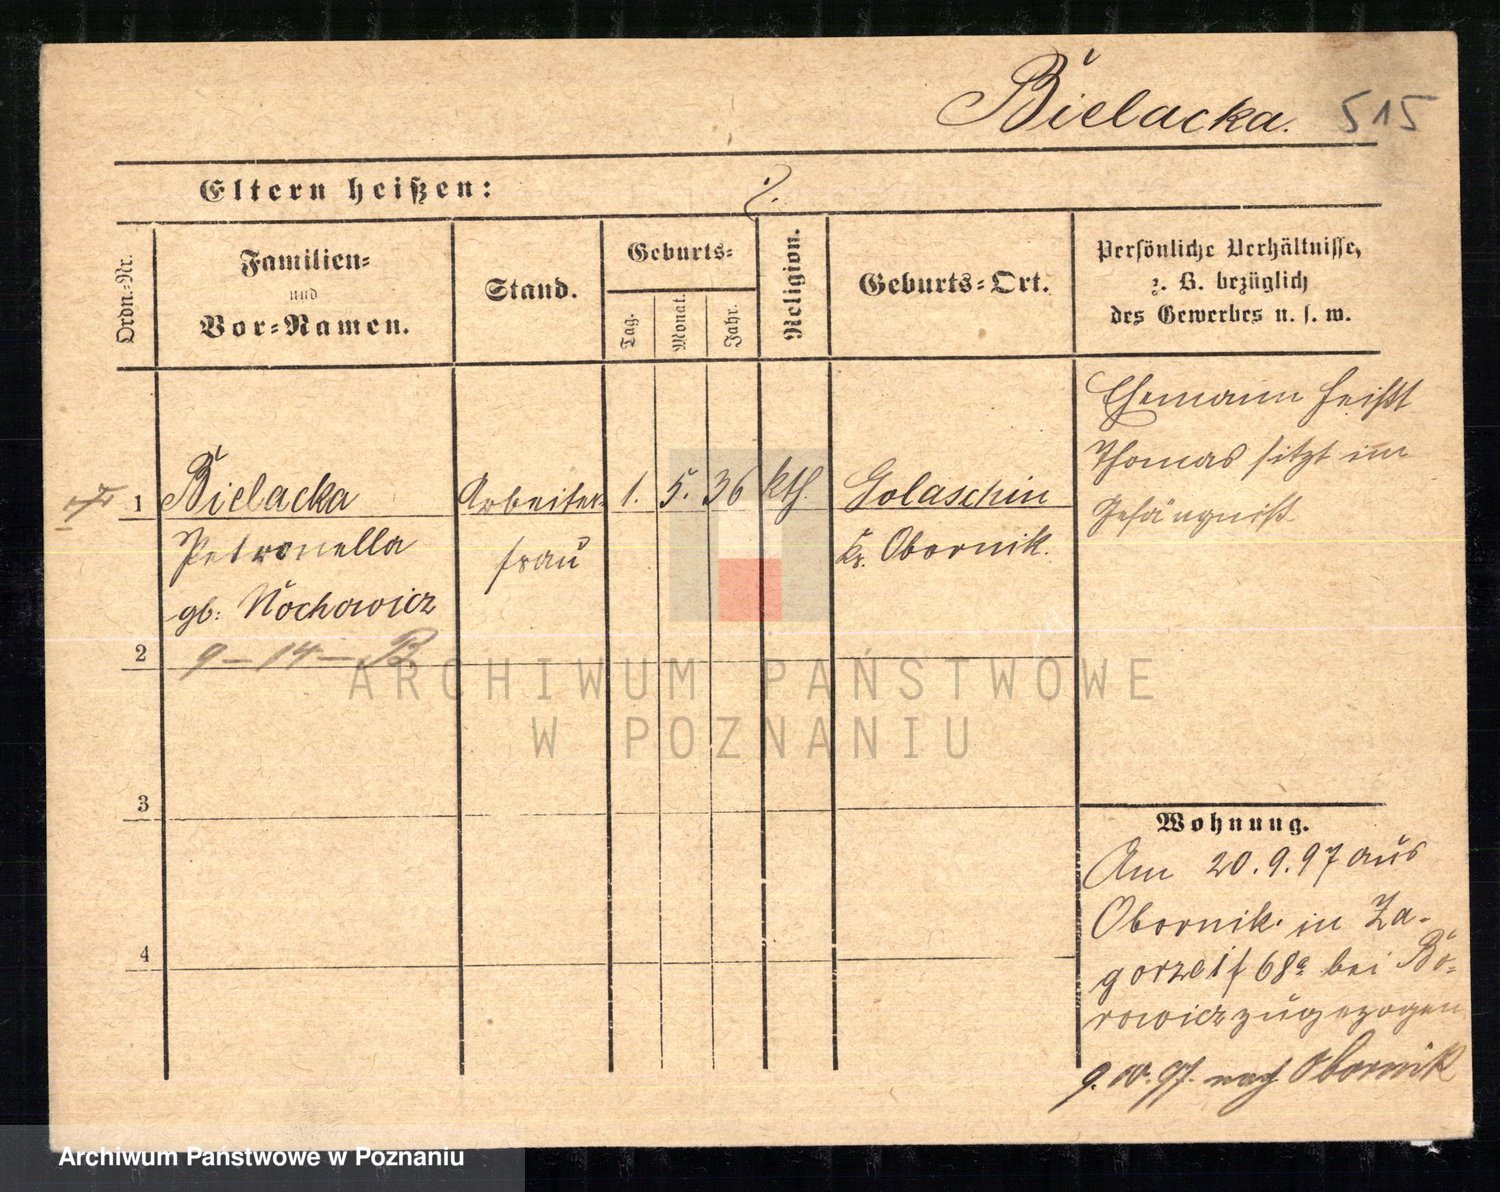 Bielacka. 515
Eltern heißen: ./.
Ordn.-Nr.
Familien-
und
Vor-Namen.
Stand.
Geburts-
Tag.
Monat.
Jahr.
Religion.
Geburts-Ort.
Persönliche Verhältnisse,
z. B. bezüglich
des Gewerbes u. s. w.
1 Bielacka Arbeiter- 1. 5. 36 kth. Golaschin
Petronella frau Kr. Obornik.
gb: Nochowicz
2 9-14-B
3
4
Ehemann heißt
Thomas sitzt im
Gefängniß
Wohnung.
Am 20.9.97 aus
Obornik in Za-
gorze 68a bei Bo-
rowicz zugezogen
9.10.97. nach Obornik
ARCHIWUM PAŃSTWOWE
W POZNANIU
Archiwum Państwowe w Poznaniu